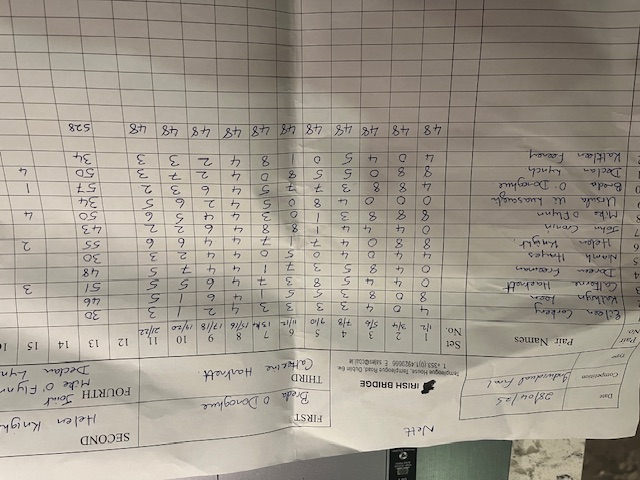 Nett
Date 28/04/25
Competition Individual Final
Type
IRISH BRIDGE
Templeogue House, Templeogue Road, Dublin 6w
FIRST Breda O Donoghue
SECOND Helen Knight
THIRD Catherine Harknett
FOURTH Joint Mike O Flynn
Declan Lynch
Pair NO Pair Names Set No. 1 2 3 4 5 6 7 8 9 10 11 12 13 14 15 16
1/2 3/4 5/6 7/8 9/10 11/12 13/14 15/16 17/18 19/20 21/22
Eileen Carbery 4 0 4 3 3 3 3 4 2 1 3 30
Kathryn 8 0 8 3 5 5 1 4 6 1 5 46
Catherine Harknett 0 4 4 5 8 3 7 4 6 5 5 51 3
Doreen Freeman 0 4 8 5 3 7 1 4 4 7 5 48
Niamh Hayes 4 4 0 4 0 5 0 4 4 2 3 30
Helen Knight. 8 8 0 4 7 1 7 4 4 6 6 55 2
John Cronin 0 4 4 4 1 8 8 4 6 2 2 43
Mike O'Flynn 8 8 8 3 1 0 3 4 4 5 6 50 4
Ursula Ui 0 0 0 4 8 0 5 4 2 6 5 34
Breda O'Donoghue 4 8 8 3 7 7 5 4 6 3 2 57 1
Declan Lynch 8 8 0 5 5 8 0 4 2 7 3 50 4
Kathleen Feeney 4 0 4 5 0 1 8 4 2 3 3 34
48 48 48 48 48 48 48 48 48 48 48 528